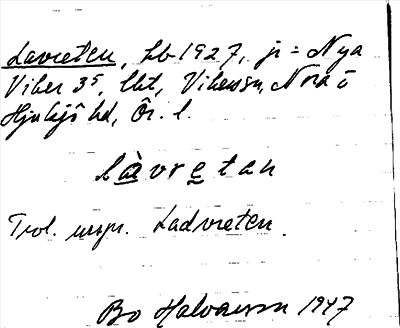 Lavreten, hb 1927, jr = Nya
Viker 3⁵, lht, Vikerssn, Nora o
Hjulsjö hd, Ör. l.
làvretan
Trol. urspr. Ladvreten.
Bo Halvarsson 1947